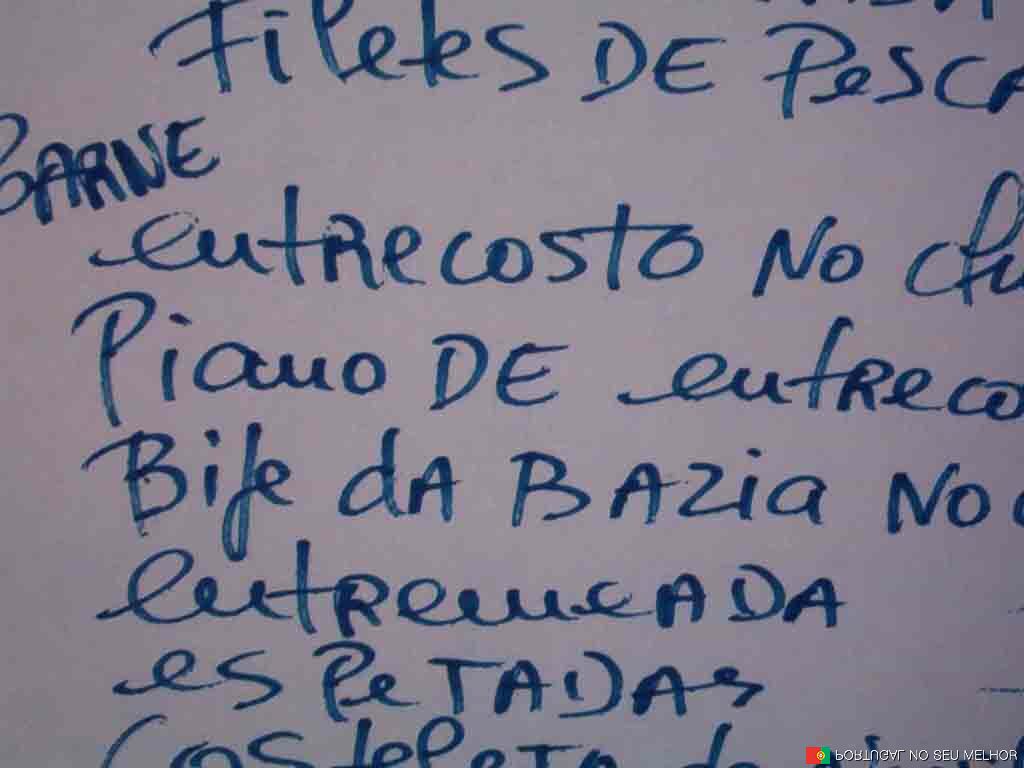 Filetes DE PesCA
CARNE
entRecosto No Chu
Piano DE entReco
Bife dA BAZia No
entRemeADA
esPeTADAs
CosteleTA de
PORTUGAL NO SEU MELHOR